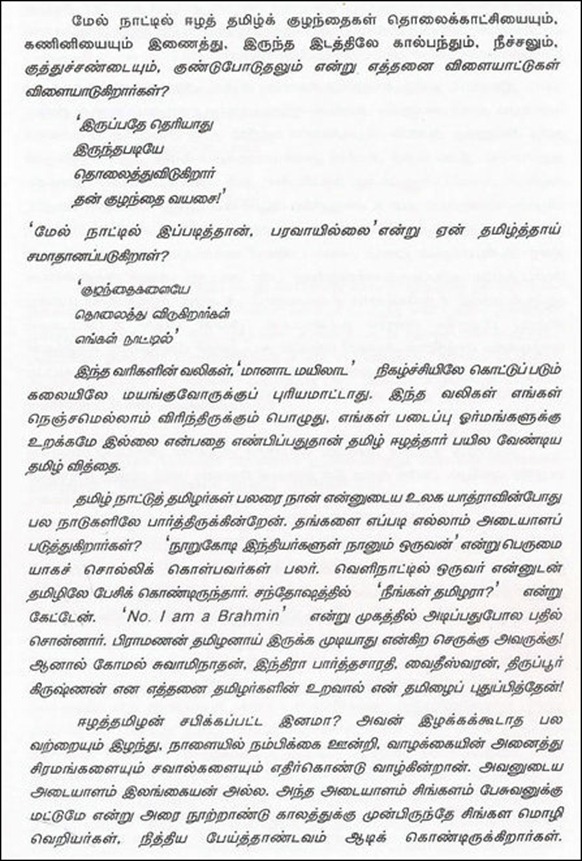 மேல் நாட்டில் ஈழத் தமிழ்க் குழந்தைகள் தொலைக்காட்சியையும்,
கணினியையும் இணைத்து, இருந்த இடத்திலே கால்பந்தும், நீச்சலும்,
குத்துச்சண்டையும், குண்டுபோடுதலும் என்று எத்தனை விளையாட்டுகள்
விளையாடுகிறார்கள்?
‘இருப்பதே தெரியாது
இருந்தபடியே
தொலைத்துவிடுகிறார்
தன் குழந்தை வயசை!’
‘மேல் நாட்டில் இப்படித்தான், பரவாயில்லை’ என்று ஏன் தமிழ்த்தாய்
சமாதானப்படுகிறாள்?
‘குழந்தைகளையே
தொலைத்து விடுகிறார்கள்
எங்கள் நாட்டில்’
இந்த வரிகளின் வலிகள், ‘மானாட மயிலாட’ நிகழ்ச்சியிலே கொட்டுப் படும்
கலையிலே மயங்குவோருக்குப் புரியமாட்டாது. இந்த வலிகள் எங்கள்
நெஞ்சமெல்லாம் விரிந்திருக்கும் பொழுது, எங்கள் படைப்பு ஓர்மங்களுக்கு
உறக்கமே இல்லை என்பதை எண்பிப்பதுதான் தமிழ் ஈழத்தார் பயில வேண்டிய
தமிழ் வித்தை.
தமிழ் நாட்டுத் தமிழர்கள் பலரை நான் என்னுடைய உலக யாத்ராவின்போது
பல நாடுகளிலே பார்த்திருக்கின்றேன். தங்களை எப்படி எல்லாம் அடையாளப்
படுத்துகிறார்கள்? ‘நூறுகோடி இந்தியர்களுள் நானும் ஒருவன்’ என்று பெருமை
யாகச் சொல்லிக் கொள்பவர்கள் பலர். வெளிநாட்டில் ஒருவர் என்னுடன்
தமிழிலே பேசிக் கொண்டிருந்தார். சந்தோஷத்தில் ‘நீங்கள் தமிழரா?’ என்று
கேட்டேன். ‘No. I am a Brahmin’ என்று முகத்தில் அடிப்பதுபோல பதில்
சொன்னார். பிராமணன் தமிழனாய் இருக்க முடியாது என்கிற செருக்கு அவருக்கு!
ஆனால் கோமல் சுவாமிநாதன், இந்திரா பார்த்தசாரதி, வைதீஸ்வரன், திருப்பூர்
கிருஷ்ணன் என எத்தனை தமிழர்களின் உறவால் என் தமிழைப் புதுப்பித்தேன்!
ஈழத்தமிழன் சபிக்கப்பட்ட இனமா? அவன் இழக்கக்கூடாத பல
வற்றையும் இழந்து, நாளையில் நம்பிக்கை ஊன்றி, வாழ்க்கையின் அனைத்து
சிரமங்களையும் சவால்களையும் எதிர்கொண்டு வாழ்கின்றான். அவனுடைய
அடையாளம் இலங்கையன் அல்ல. அந்த அடையாளம் சிங்களம் பேசுவனுக்கு
மட்டுமே என்று அரை நூற்றாண்டு காலத்துக்கு முன்பிருந்தே சிங்கள மொழி
வெறியர்கள், நித்திய பேய்த்தாண்டவம் ஆடிக் கொண்டிருக்கிறார்கள்.